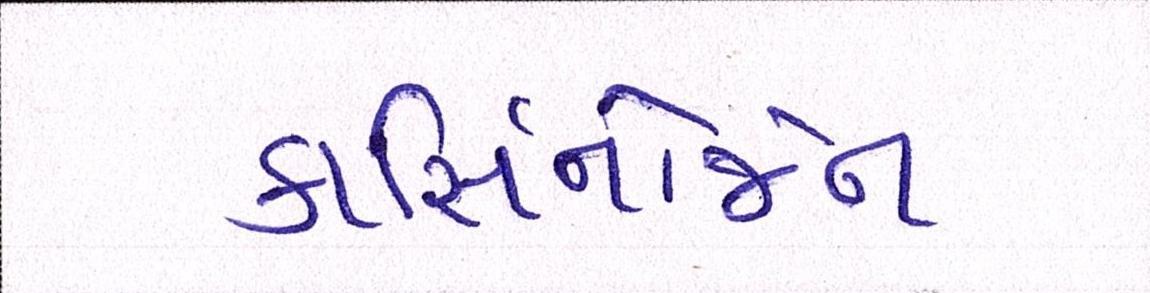 કાર્સિનોજેન